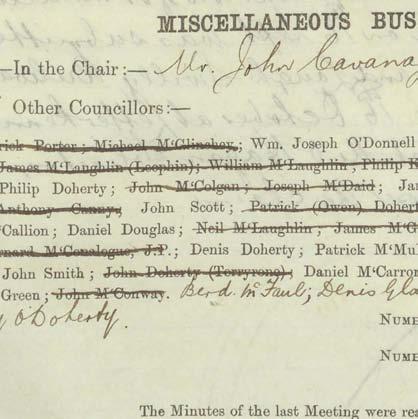 MISCELLANEOUS BUS
—In the Chair:— Mr. John Cavana
Other Councillors:—
rick Porter; Michael M'Glinchey; Wm. Joseph O'Donnell
James M'Laughlin (Leephin); William M'Laughlin; Philip K
Philip Doherty; John M'Colgan; Joseph M'Daid; Ja
Anthony Canny; John Scott; Patrick (Owen) Dohert
M'Callion; Daniel Douglas; Neil M'Laughlin; James M'G
ernard M'Conalogue, J.P.; Denis Doherty; Patrick M'Mu
John Smith; John Doherty (Terryrone); Daniel M'Carron
Green; John M'Conway. Berd. McFaul; Denis Gla
y O'Doherty.
NUME
NUME
The Minutes of the last Meeting were rea